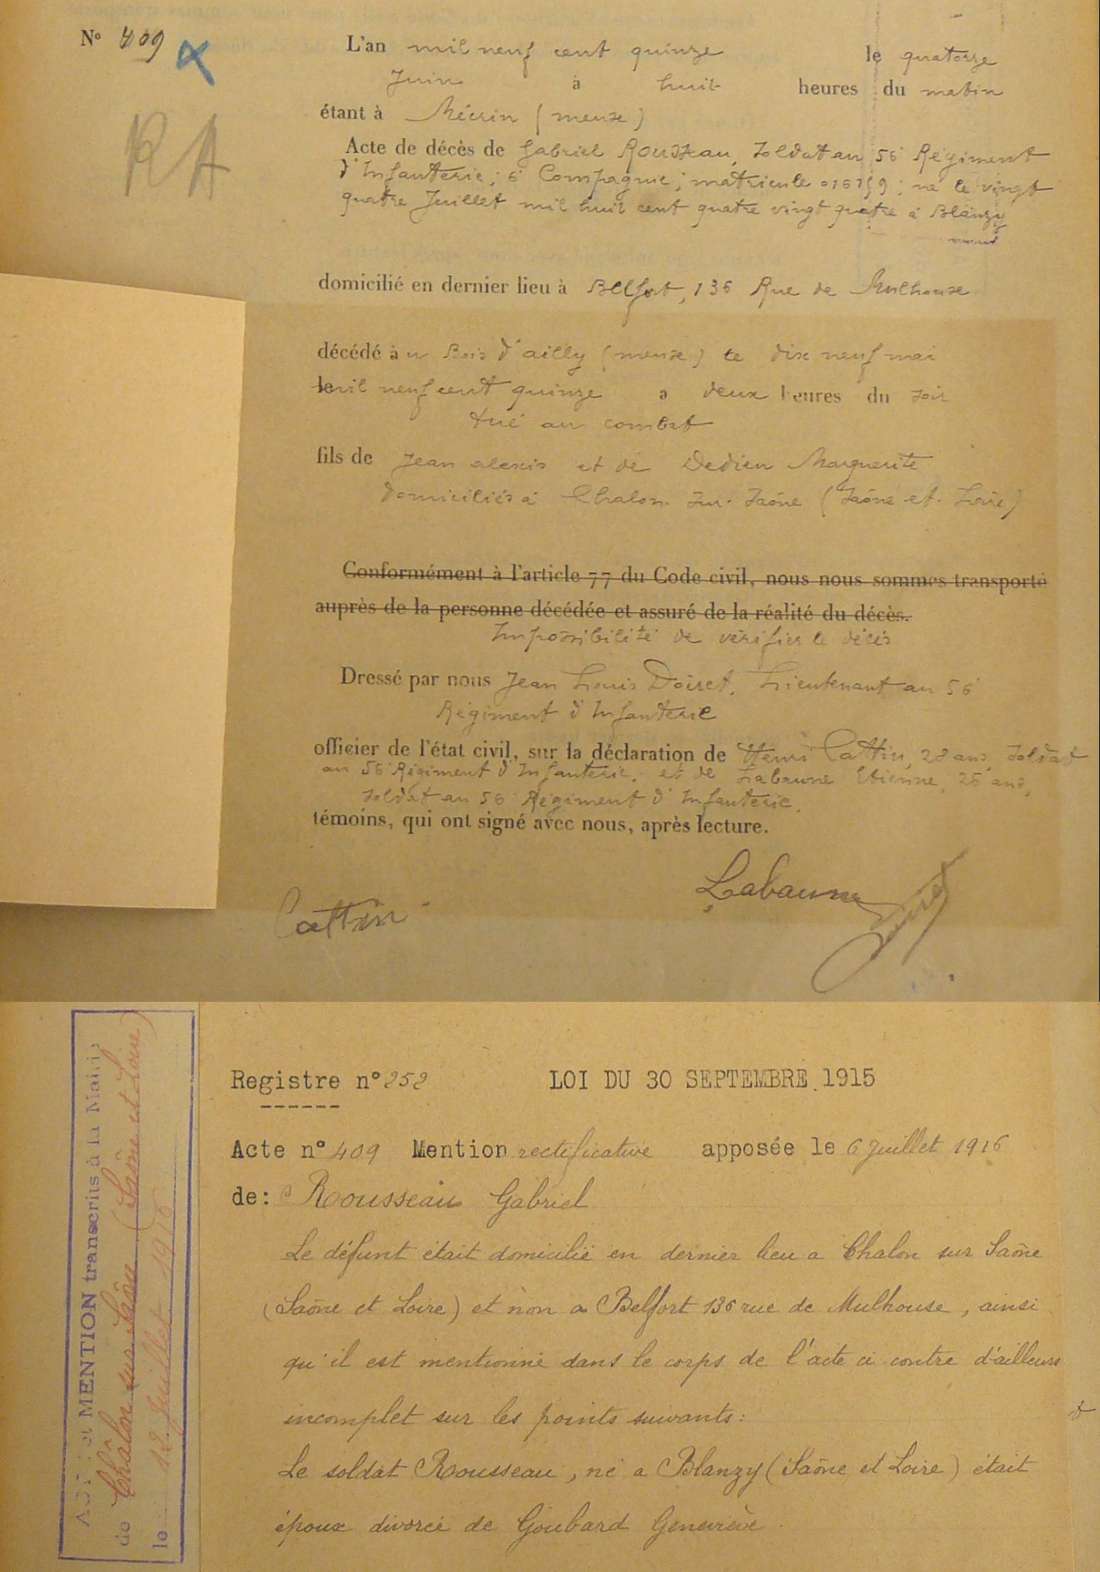 N° 409
RA
L'an mil neuf cent quinze le quatorze
Juin à huit heures du matin
étant à Mécrin (meuse)
Acte de décès de Gabriel Rousseau, Soldat au 56 Régiment
d'Infanterie; 6 Compagnie; matricule ; né le vingt
quatre Juillet mil huit cent quatre vingt quatre à Blanzy
domicilié en dernier lieu à Belfort, 136 Rue de Mulhouse
décédé au Bois d'ailly (meuse) le dix neuf mai
mil neuf cent quinze a deux heures du soir
tué au combat
fils de Jean alexis et de Dedieu Marguerite
domiciliés à Chalon-sur-Saône (Saône-et-Loire)
Conformément à l'article 77 du Code civil, nous nous sommes transporté
auprès de la personne décédée et assuré de la réalité du décès.
Impossibilité de vérifier le décès
Dressé par nous Jean Louis Doiret, Lieutenant au 56
Régiment d'Infanterie
officier de l'état civil, sur la déclaration de Henri Cattin, 28 ans, soldat
au 56 Régiment d'Infanterie, et de Labaune Etienne, 25 ans,
soldat au 56 Régiment d'Infanterie,
témoins, qui ont signé avec nous, après lecture.
Labaune
Cattin
Doiret
ACTE et MENTION transcrits à la Mairie
de Châlon sur Saône (Saône et Loire)
le 12 Juillet 1916
Registre n° 252 LOI DU 30 SEPTEMBRE 1915
Acte n° 409 Mention rectificative apposée le 6 Juillet 1916
de: Rousseau Gabriel
Le défunt était domicilié en dernier lieu a Chalon sur Saône
(Saône et Loire) et non a Belfort 136 rue de Mulhouse, ainsi
qu'il est mentionné dans le corps de l'acte ci contre d'ailleurs
incomplet sur les points suivants:
Le soldat Rousseau, né a Blanzy (Saône et Loire) était
époux divorcé de Goubard Geneviève